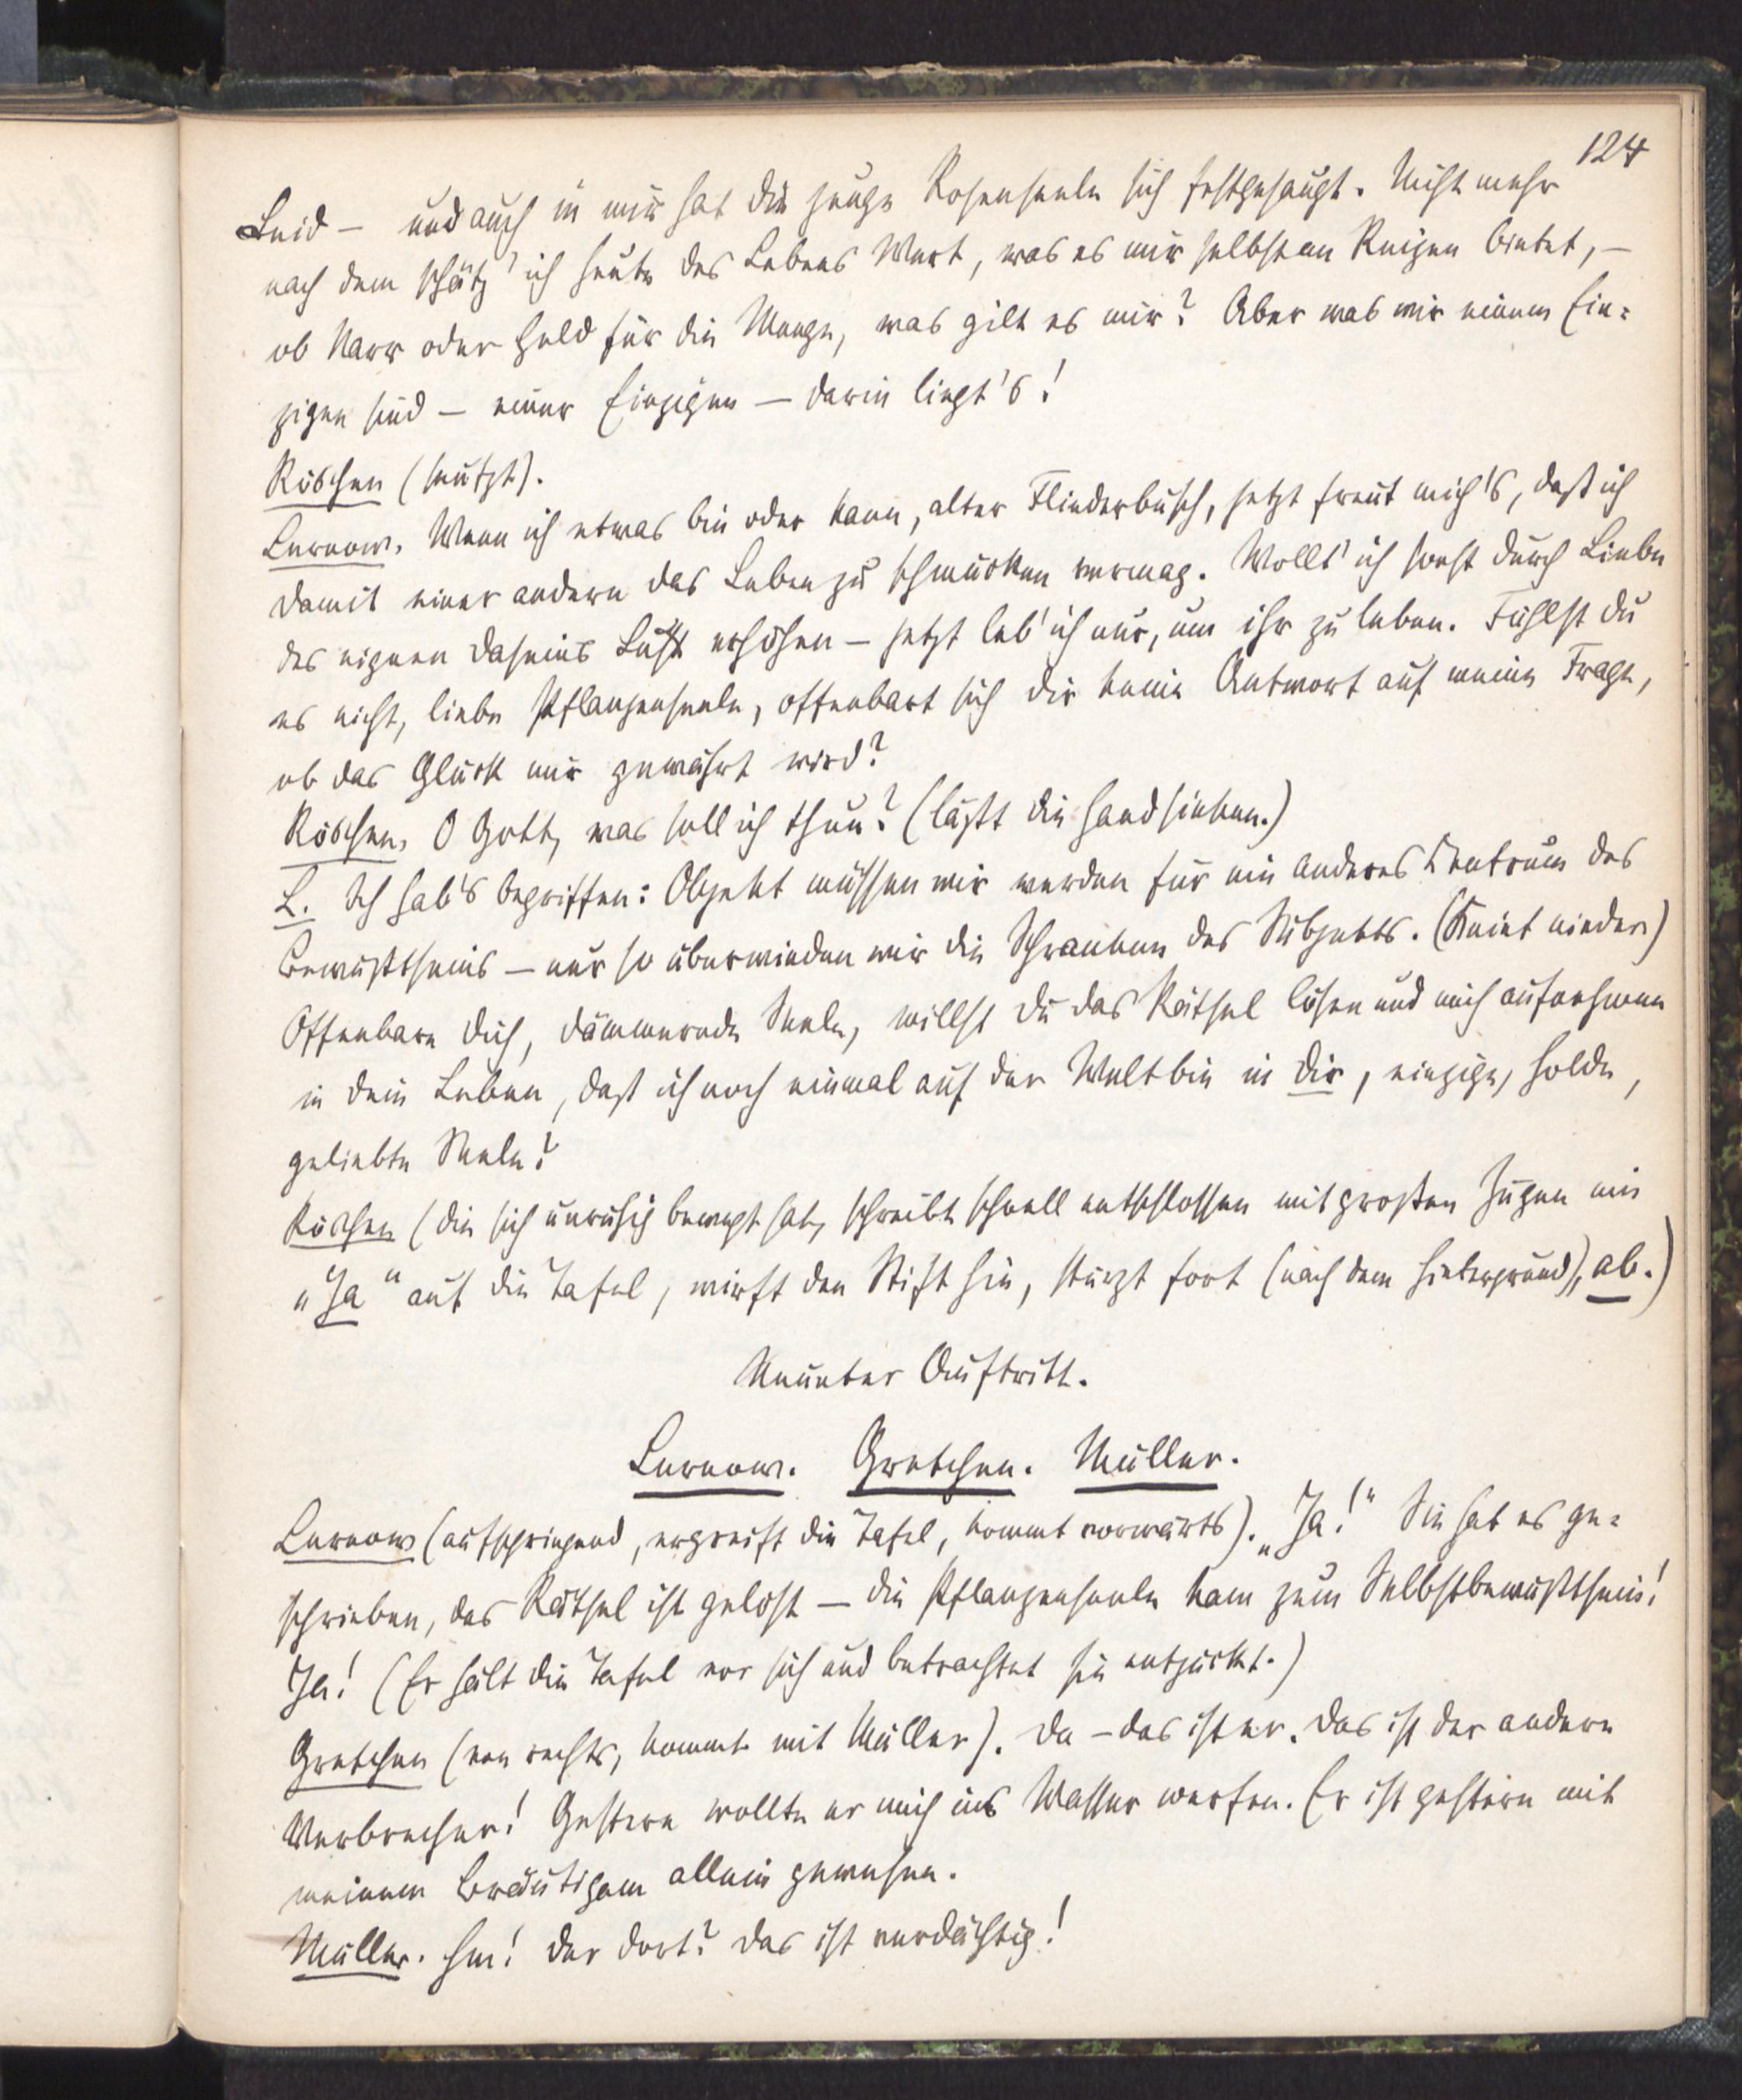 124
Leid – und auch in mir hat die junge Rosenseele sich festgesaugt. Nicht mehr
nach dem schätz' ich heute des Lebens Wert, was es mir selbst an Reizen bietet, –
ob Narr oder Held für die Menge, was gilt es mir? Aber was wir einem Ein-
zigen sind – einer Einzigen – darin liegt's!
Röschen (seufzt).
Lernow. Wenn ich etwas bin oder kann, alter Fliederbusch, jetzt freut mich's, daß ich
damit einer andern das Leben zu schmücken vermag. Wollt' ich sonst durch Liebe
des eignen Daseins Lust erhöhen – jetzt leb' ich nur, um ihr zu leben. Fühlst du
es nicht, liebe Pflanzenseele, offenbart sich dir keine Antwort auf meine Frage,
ob das Glück mir gewährt wird?
Röschen. O Gott, was soll ich thun? (läßt die Hand sinken.)
L. Ich hab's begriffen: Objekt müssen wir werden für ein anderes Zentrum des
Bewußtseins – nur so überwinden wir die Schranken des Subjekts. (Kniet nieder)
Offenbare dich, dämmernde Seele, willst du das Rätsel lösen und mich aufnehmen
in dein Leben, daß ich noch einmal auf der Welt bin in dir, einzige, holde,
geliebte Seele?
Röschen (die sich unruhig bewegt hat, schreibt schnell entschlossen mit großen Zügen ein
„Ja“ auf die Tafel, wirft den Stift hin, stürzt fort (nach dem Hintergrund), ab.)
Neunter Auftritt.
Lernow. Gretchen. Müller.
Lernow (aufspringend, ergreift die Tafel, kommt vorwärts). „Ja!“ Sie hat es ge-
schrieben, das Rätsel ist gelöst – die Pflanzenseele kam zum Selbstbewußtsein!
Ja! (Er hält die Tafel vor sich und betrachtet sie entzückt.)
Gretchen (von rechts, kommt mit Müller). Da – das ist er. Das ist der andere
Verbrecher! Gestern wollte er mich ins Wasser werfen. Er ist gestern mit
meinem Bräutigam allein gewesen.
Müller. Hm! Der dort? Das ist verdächtig!